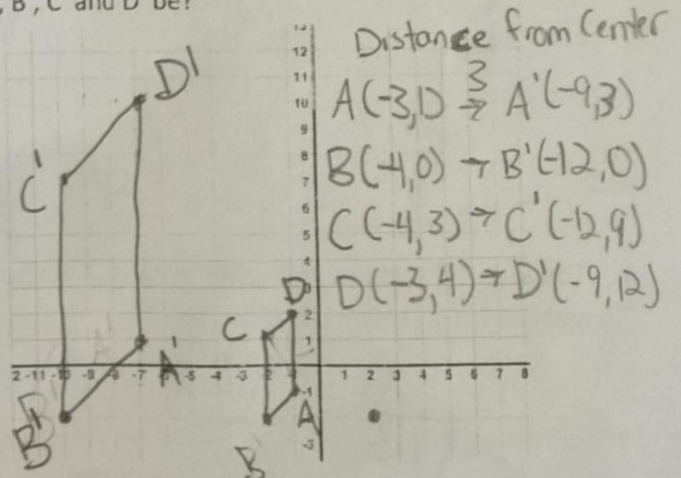 , B', C' and D' be?
Distance from Center
A(-3,1) 3→ A'(-9,3)
B(-4,0) → B'(-12,0)
C(-4,3) → C'(-12,9)
D(-3,4) → D'(-9,12)
D'
C'
A'
B'
D
C
A
B
12
11
10
9
8
7
6
5
4
3
2
1
2 -11 -10 -9 -8 -7 -5 -4 -3 -2 1 2 3 4 5 6 7 8
-1
-3